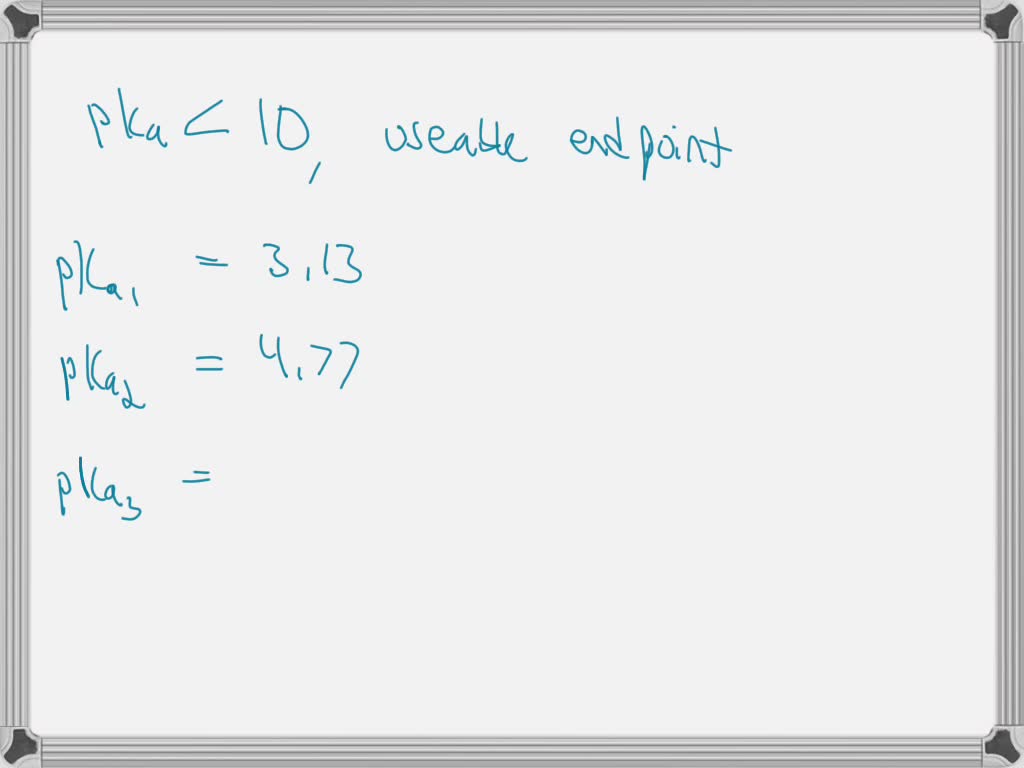 pKa < 10, useable endpoint
pKa₁ = 3.13
pKa₂ = 4.77
pKa₃ =